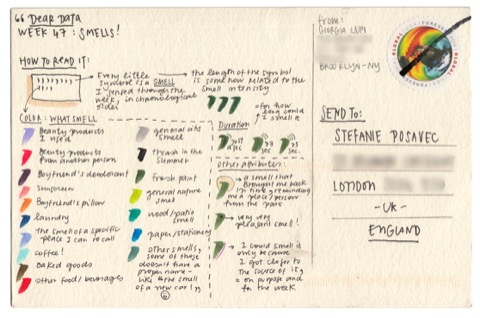 " Dear Data
WEEK 47: SMELLS!
HOW TO READ IT:
Every little
symbol is a SMELL
I sensed through the
week, in chronological
order
the length of the symbol
is somehow related to the
smell intensity
= for how
long could
I smell it
Duration
sec
sec.
sec.
COLOR: WHAT SMELL
Beauty products
I used
Beauty products
from another person
Boyfriend's deodorant
sunscreen
Boyfriend's pillow
laundry
The smell of a specific
place I can recall
coffee!
Baked goods
other food/beverages
general city
smell
trash in the
summer
fresh paint
general nature
smell
wood/patio
smell
paper/stationery
other smells,
some of those
doesn't have a
proper name -
like the smell
of a new car!
Other attributes:
= a smell that
brought me back
in time reminding
me a place/person
from the past
= very very
pleasant smell!
I could smell it
only because
I got closer to
the source of it,
= on purpose and
for the week
from:
GIORGIA LUPI
BROOKLYN-NY
GLOBAL
FOREVER
SEND TO:
STEFANIE POSAVEC
LONDON
-UK-
ENGLAND